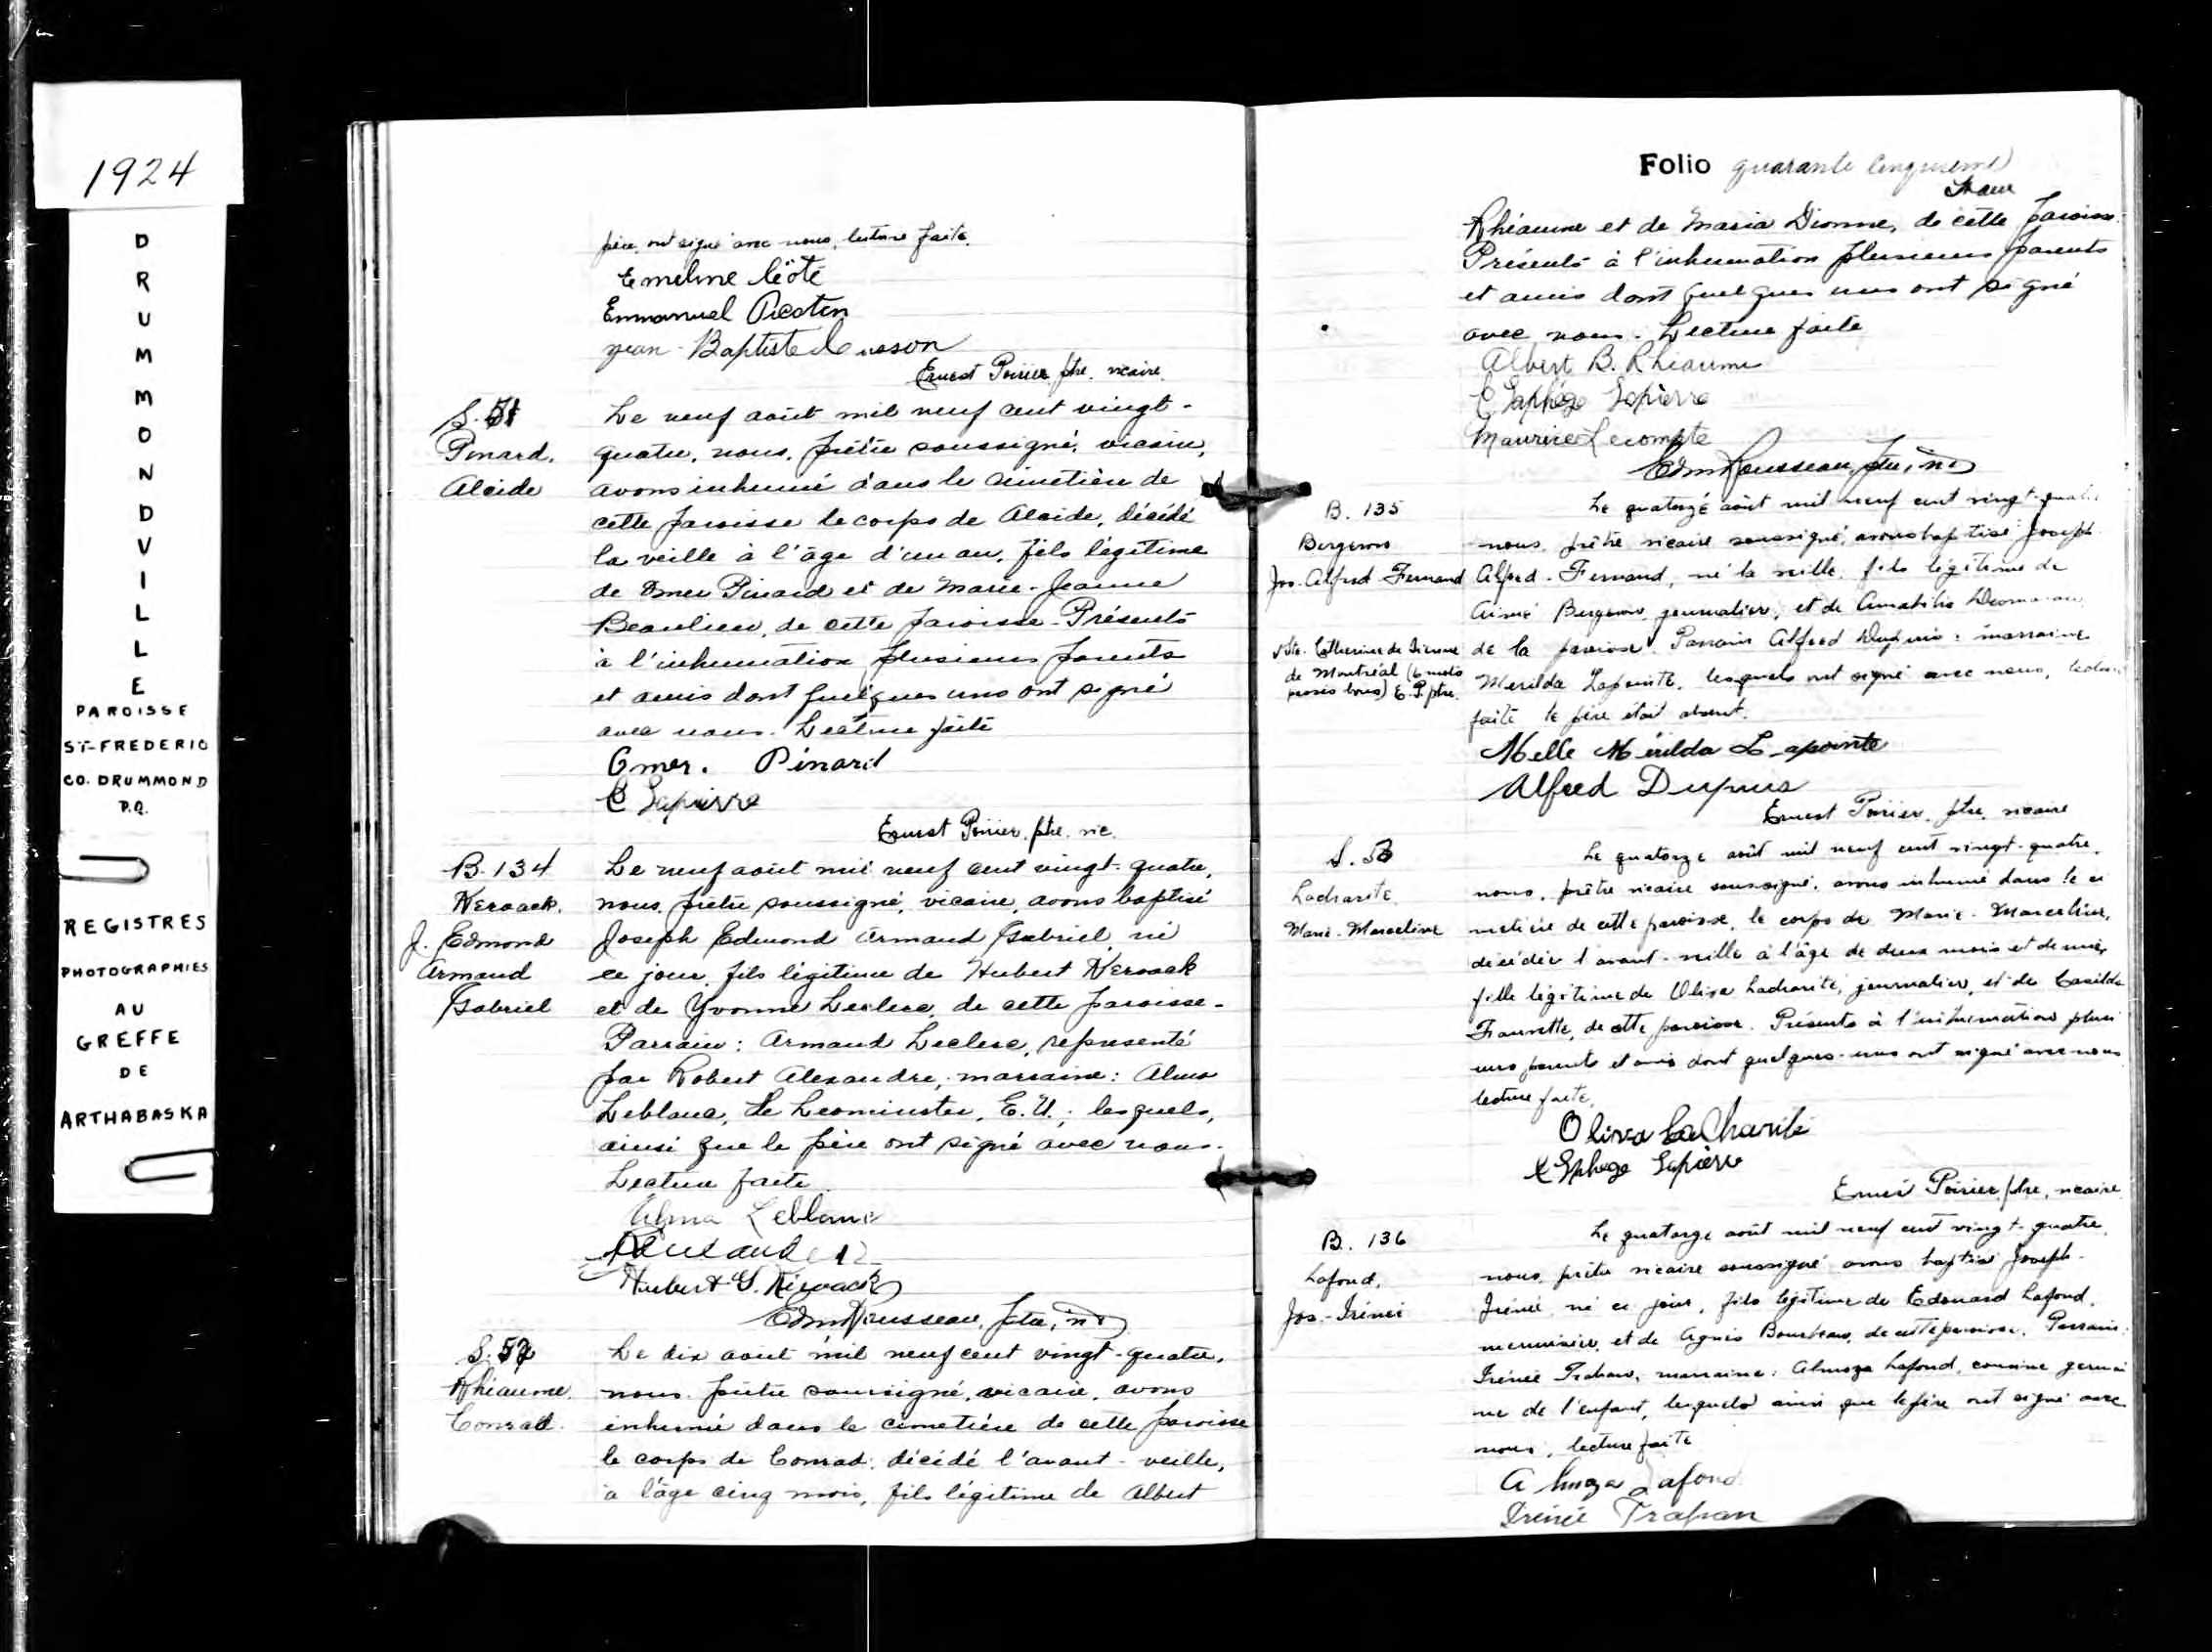 1924
DRUMMONDVILLE
PAROISSE
ST-FREDERIC
CO. DRUMMOND
P.Q.
REGISTRES
PHOTOGRAPHIES
AU
GREFFE
DE
ARTHABASKA
père, ont signé avec nous, lecture faite.
Emeline Côté
Emmanuel Picotin
Jean-Baptiste
Ernest Poirier, ptre. vicaire.
S. 51
Pinard,
Alcide
Le neuf août mil neuf cent vingt-
quatre, nous, prêtre soussigné, vicaire,
avons inhumé dans le cimetière de
cette paroisse le corps de Alcide, décédé
la veille à l'âge d'un an, fils légitime
de Omer Pinard et de Marie-Jeanne
Beaulieu, de cette paroisse. Présents
à l'inhumation plusieurs parents
et amis dont quelques uns ont signé
avec nous. Lecture faite
Omer. Pinard
E Lapierre
Ernest Poirier, ptre. vic.
B. 134
Keroack,
J. Edmond
Armand
Gabriel
Le neuf août mil neuf cent vingt-quatre,
nous, prêtre soussigné, vicaire, avons baptisé
Joseph Edmond Armand Gabriel, né
ce jour, fils légitime de Hubert Keroack
et de Yvonne Leclerc, de cette paroisse-
Parrain: Armand Leclerc, représenté
par Robert Alexandre, marraine: Alma
Leblanc, de Leominster, E.U.; lesquels,
ainsi que le père ont signé avec nous.
Lecture faite
Alma Leblanc
Hubert G. Kéroack
Edm Rousseau, ptre,
S. 52
Rhéaume,
Conrad.
Le dix août mil neuf cent vingt-quatre,
nous, prêtre soussigné, vicaire, avons
inhumé dans le cimetière de cette paroisse
le corps de Conrad, décédé l'avant-veille,
à l'âge cinq mois, fils légitime de Albert
Folio quarante cinquième
Rhéaume et de Maria Dionne, de cette paroisse.
Présents à l'inhumation plusieurs parents
et amis dont quelques uns ont signé
avec nous. Lecture faite
Albert B. Rhéaume
E Lapierre
Maurice Lecompte
Edm Rousseau, ptre,
B. 135
Bergeron
Jos. Alfred-Fernand
Ste. Catherine de Sienne
de Montréal (6 mots
bons) E.P. ptre.
Le quatorze août mil neuf cent vingt-quatre
nous, prêtre vicaire soussigné, avons baptisé Joseph
Alfred-Fernand, né la veille, fils légitime de
Aimé Bergeron, journalier, et de Amabilis
de la paroisse. Parrain Alfred Dupuis: marraine
Merilda Lapointe, lesquels ont signé avec nous, lecture
faite le père était absent.
Melle Mérilda Lapointe
Alfred Dupuis
Ernest Poirier, ptre, vicaire
S. 53
Lacharité,
Marie-Marceline
Le quatorze août mil neuf cent vingt-quatre,
nous, prêtre vicaire soussigné, avons inhumé dans le ci
metière de cette paroisse, le corps de Marie-Marceline,
décédée l'avant-veille à l'âge de deux mois et demie,
fille légitime de Oliva Lacharité, journalier, et de Casilda
de cette paroisse. Présents à l'inhumation plusi
eurs parents et amis dont quelques-uns ont signé avec nous
lecture faite.
Oliva LaCharité
Elphège Lapierre
Ernest Poirier, ptre, vicaire
B. 136
Lafond,
Jos.-Irénée
Le quatorze août mil neuf cent vingt-quatre,
nous, prêtre vicaire soussigné avons baptisé Joseph-
Irénée, né ce jour, fils légitime de Edouard Lafond,
menuisier, et de Agnès Bourbeau, de cette paroisse. Parrain:
Irénée Trahan, marraine: Almoza Lafond, cousine germai
ne de l'enfant, lesquels ainsi que le père ont signé avec
nous, lecture faite
Almoza Lafond
Irénée Trahan